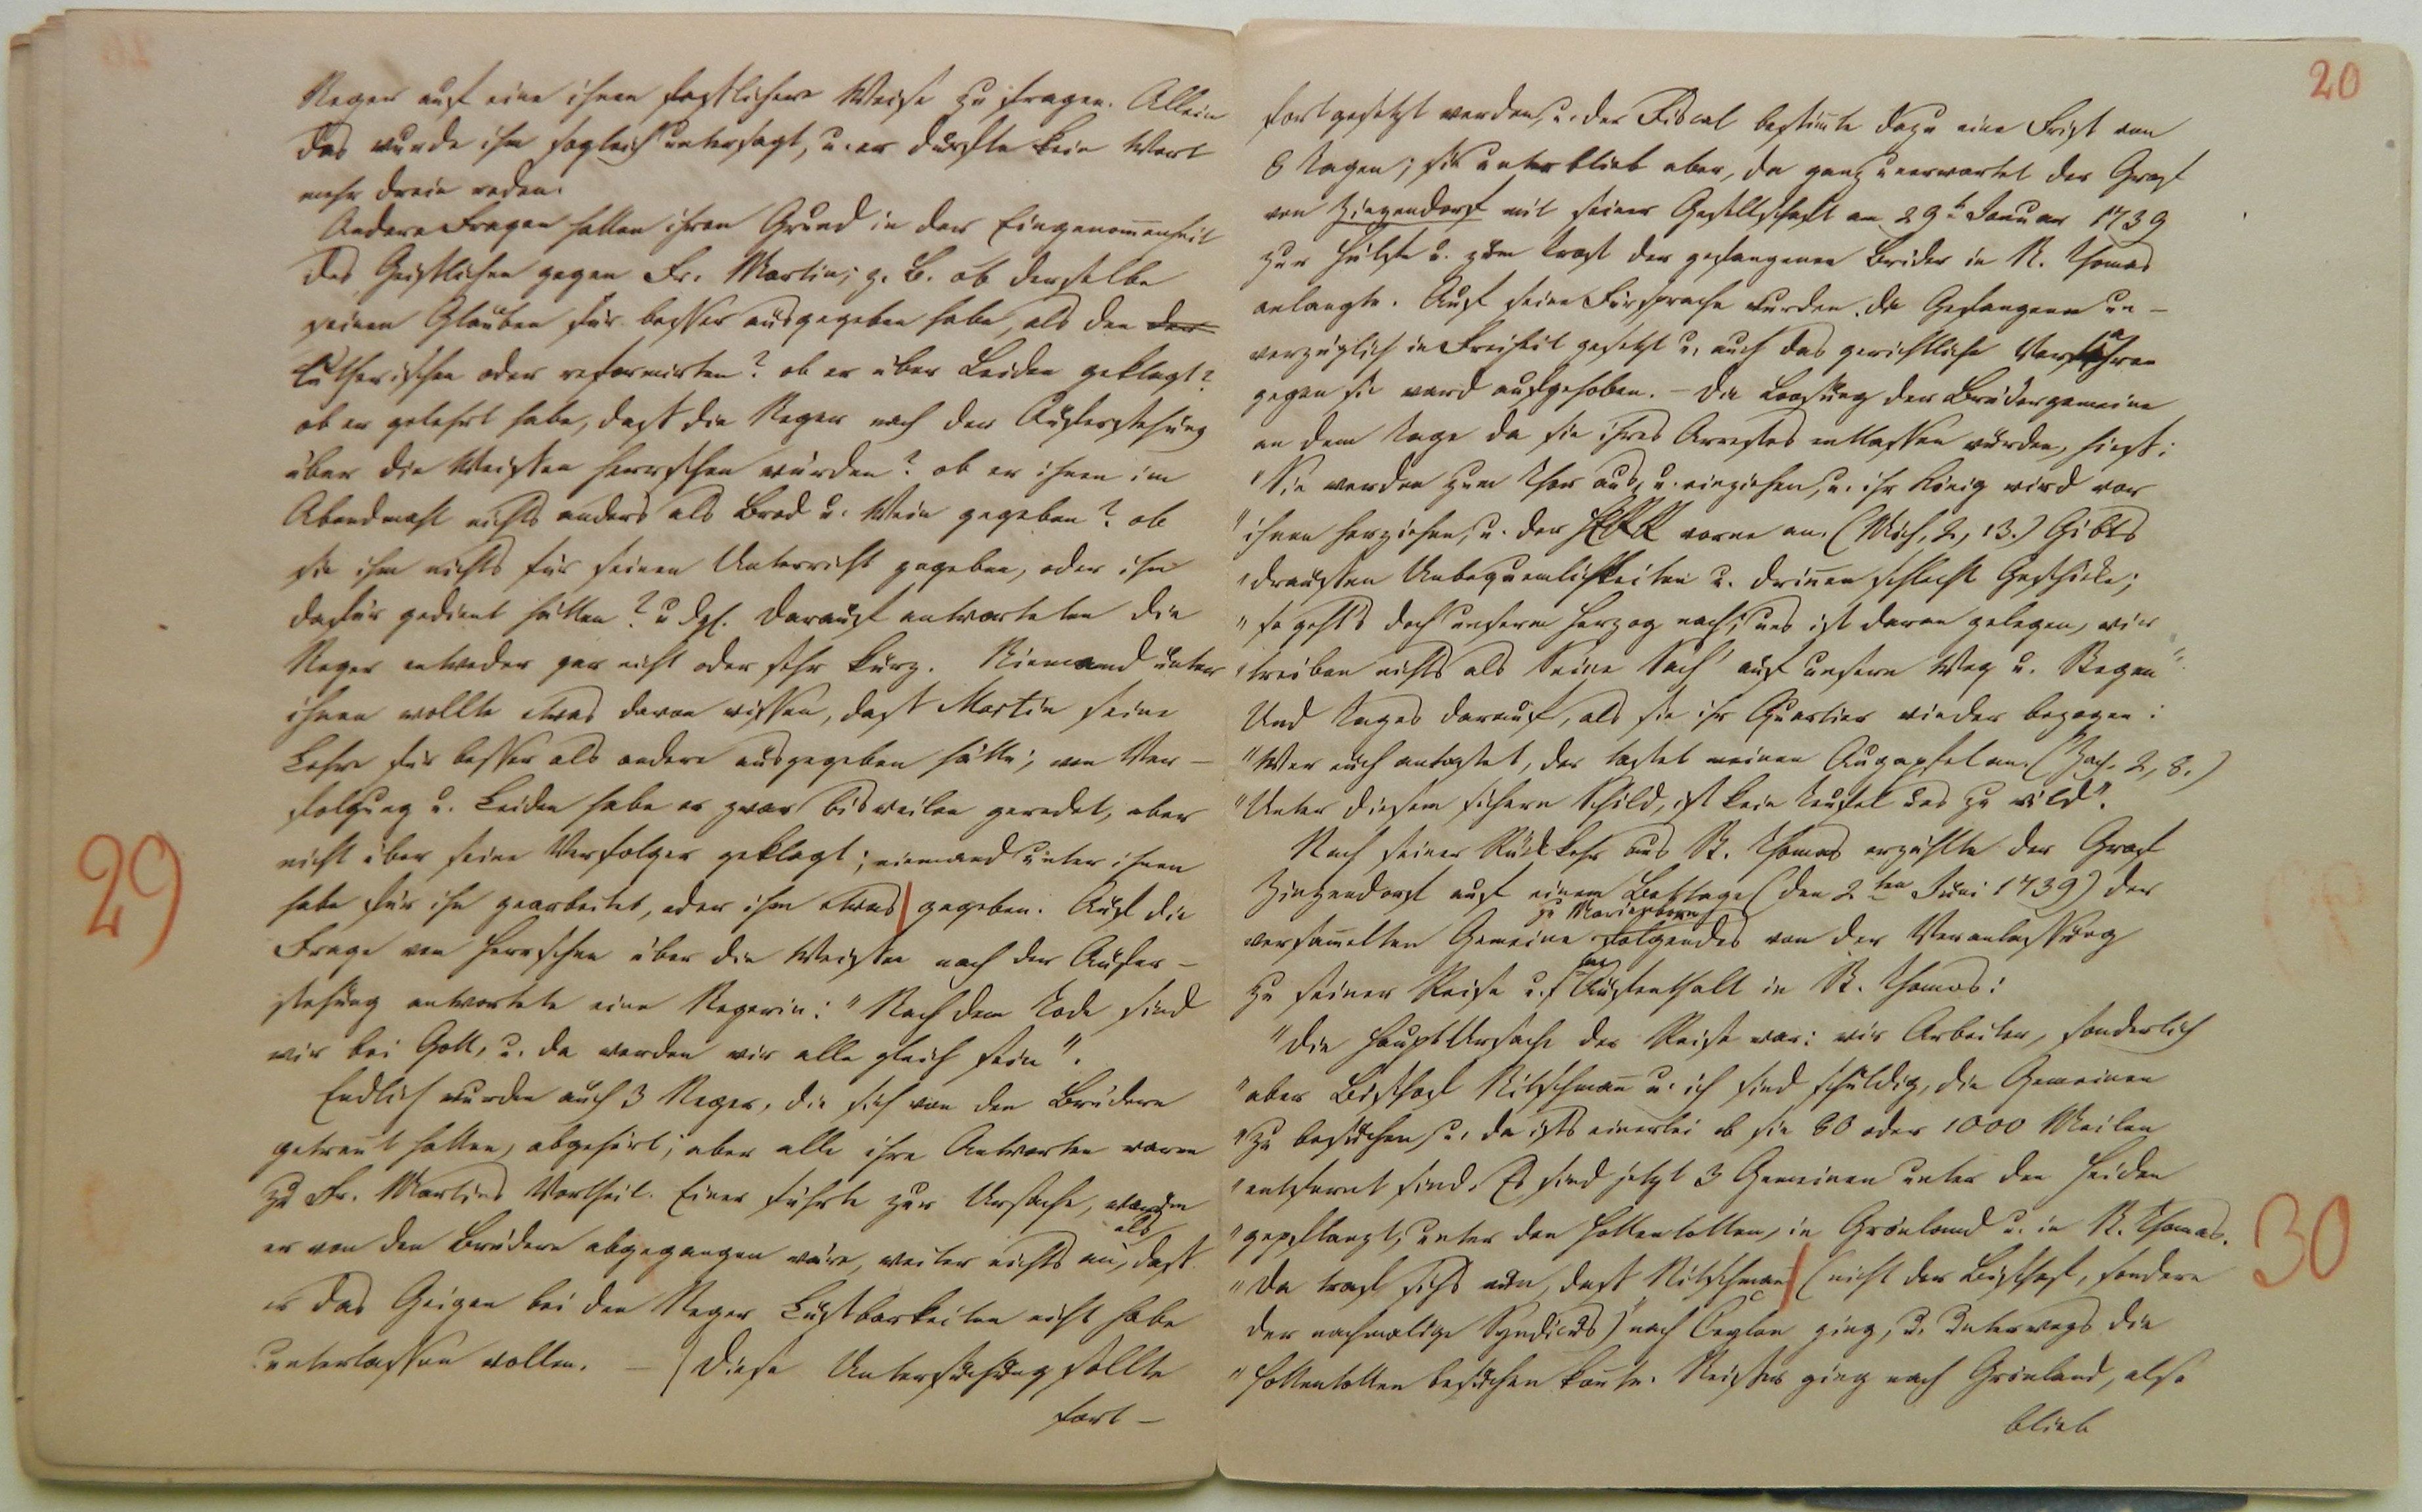 Neger auf eine ihnen faßlichere Weise zu fragen. Allein
das wurde ihm sogleich untersagt, u. er durfte kein Wort
mehr drein reden.
Andere Fragen hatten ihren Grund in der Eingenom̄enheit
des Geistlichen gegen Fr. Martin; z. B. ob derselbe
seinen Glauben für besser ausgegeben habe, als den der
lutherischen oder reformirten? ob er über Leiden geklagt?
ob er gelehrt habe, daß die Neger nach der Auferstehung
über die Weißen herrschen würden? ob er ihnen im
Abendmahl nichts anders als Brod u. Wein gegeben? ob
sie ihm nichts für seinen Unterricht gegeben, oder ihm
dafür gedient hätten? u. dgl. Darauf antworteten die
Neger entweder gar nicht oder sehr kurz. Niemand unter
ihnen wollte etwas davon wissen, daß Martin seine
Lehre für besser als andere ausgegeben hätte; von Ver-
folgung u. Leiden habe er zwar bisweilen geredet, aber
nicht über seine Verfolger geklagt; niemand unter ihnen
29
habe für ihn gearbeitet, oder ihm etwas | gegeben. Auf die
Frage vom Herrschen über die Weißen nach der Aufer-
stehung antwortete eine Negerin: "Nach dem Tode sind
wir bei Gott, u. da werden wir alle gleich sein".
Endlich wurden auch 3 Neger, die sich von den Brüdern
getren̄t hatten, abgehört; aber alle ihre Antworten waren
zu Fr. Martins Vortheil. Einer führte zur Ursache, warum
er von den Brüdern abgegangen wäre, weiter nichts an, als daß
er das Geigen bei den Neger Lustbarkeiten nicht habe
unterlassen wollen. — Diese Untersuchung sollte
fort-
20
fortgesetzt werden, u. der Fiscal bestim̄te dazu eine Frist von
8 Tagen; sie unterblieb aber, da ganz unerwartet der Graf
von Zinzendorf mit seiner Gesellschaft am 29t Januar 1739
zur Hülfe u. zum Trost der gefangenen Brüder in St. Thomas
anlangte. Auf seine Fürsprache wurden die Gefangenen un-
verzüglich in Freiheit gesetzt u. auch das gerichtliche Verfahren
gegen sie ward aufgehoben. — Die Loosung der Brüdergemeine
an dem Tage da sie ihres Arrestes entlassen wurden, hieß:
"Sie werden zum Thor aus- u. einziehen, u. ihr König wird vor
"ihnen herziehen, u. der HERR vorne an. (Mich. 2, 13.) Gibts
"draußen Unbequemlichkeiten u. drin̄en schlecht Geschicke;
"so geht's doch unserm Herzog nach; uns ist daran gelegen, wir
"treiben nichts als Seine Sach' auf unsern Weg u. Stegen".
Und Tages darauf, als sie ihr Quartier wieder bezogen:
"Wer euch antastet, der tastet meinen Augapfel an. (Zach. 2, 8.)
"Unter diesem sichern Schild, ist kein Teufel uns zu wild".
Nach seiner Rückkehr aus St. Thomas erzählte der Graf
Zinzendorf auf einem Bettage (den 2ten Juni 1739) der
zu Marienborn
versam̄elten Gemeine Folgendes von der Veranlassung
zu seiner Reise u. sm Aufenthalt in St. Thomas:
"Die Haupt Ursache der Reise war: wir Arbeiter, sonderlich
"aber Bischof Nitschman̄ u. ich sind schuldig, die Gemeinen
"zu besuchen, u. da ists einerlei ob sie 80 oder 1000 Meilen
"entfernt sind. Es sind jetzt 3 Gemeinen unter den Heiden
"gepflanzt; unter den Hottentotten, in Grönland u. in St. Thomas.
30
"Da traf sichs nun, daß Nitschman̄ | (nicht der Bischof, sondern
der nachmalige Syndicus) nach Ceylon ging, u. unterwegs die
"Hottentotten besuchen kon̄te. Neisser ging nach Grönland, also
blieb